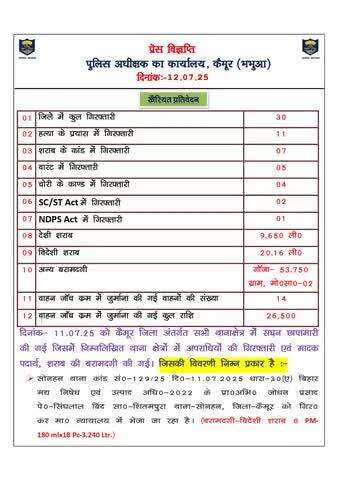 प्रेस विज्ञप्ति
पुलिस अधीक्षक का कार्यालय, कैमूर (भभुआ)
दिनांक:-12.07.25
खैरियत प्रतिवेदन
01 जिले में कुल गिरफ्तारी 30
02 हत्या के प्रयास में गिरफ्तारी 11
03 शराब के कांड में गिरफ्तारी 07
04 वारंट में गिरफ्तारी 05
05 चोरी के काण्ड में गिरफ्तारी 04
06 SC/ST Act में गिरफ्तारी 02
07 NDPS Act में गिरफ्तारी 01
08 देशी शराब 9.650 ली०
09 विदेशी शराब 20.16 ली०
10 अन्य बरामदगी गाँजा- 53.750
ग्राम, मो०सा०-02
11 वाहन जाँच क्रम में जुर्माना की गई वाहनों की संख्या 14
12 वाहन जाँच क्रम में जुर्माना की गई कुल राशि 26,500
दिनांक- 11.07.25 को कैमूर जिला अंतर्गत सभी थानाक्षेत्र में सघन छापामारी
की गई जिसमें निम्नलिखित थाना क्षेत्रों में अपराधियों की गिरफ्तारी एवं मादक
पदार्थ, शराब की बरामदगी की गई। जिसकी विवरणी निम्न प्रकार है :-
➢ सोनहन थाना कांड सं०-129/25 दि०-11.07.2025 धारा-30(ए) बिहार
मद्य निषेध एवं उत्पाद अधि०-2022 के प्रा०अभि० जोधन प्रसाद
पे०-सिंघलात बिंद सा०-शितमपुरा थाना-सोनहन, जिला-कैमूर को गिर०
कर मा० न्यायालय में भेजा जा रहा है। (बरामदगी-विदेशी शराब 8 PM-
180 mlx18 Pc-3.240 Ltr.)